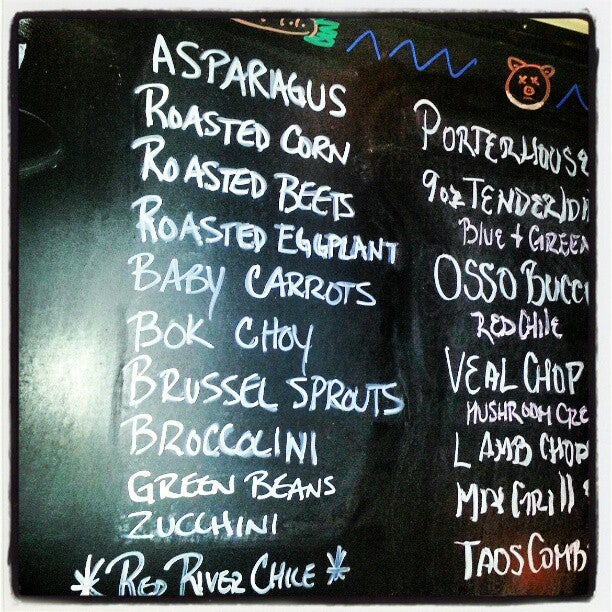 ASPARAGUS
ROASTED CORN
ROASTED BEETS
ROASTED EGGPLANT
BABY CARROTS
BOK CHOY
BRUSSEL SPROUTS
BROCCOLINI
GREEN BEANS
ZUCCHINI
* RED RIVER CHILE *
PORTERHOUSE
9oz TENDERLOI
BLUE + GREEN
OSSO BUCC
RED CHILE
VEAL CHOP
MUSHROOM CRE
LAMB CHOP
MIX GRILL
TAOS COMB